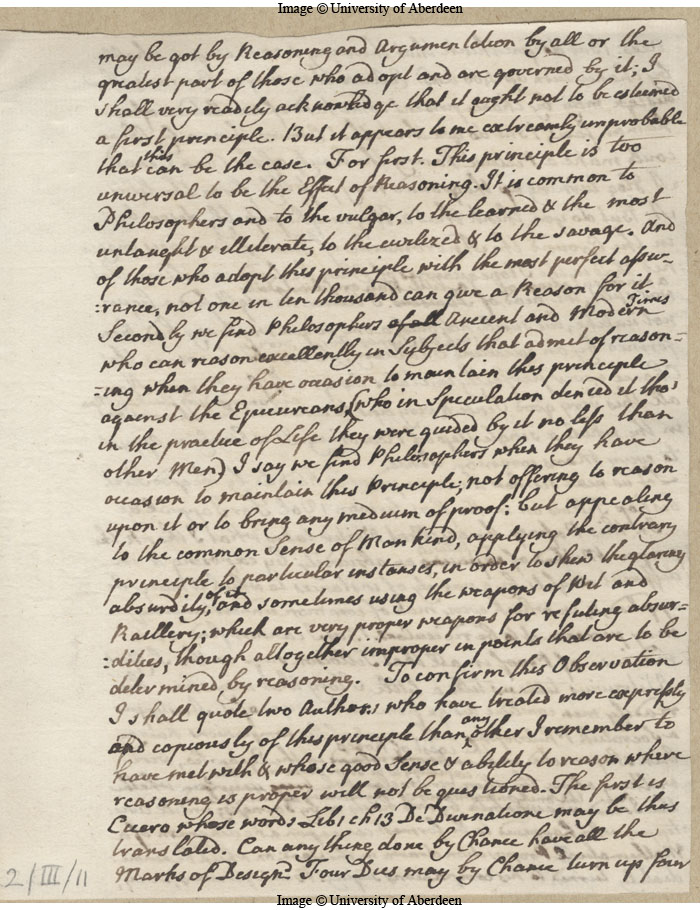 Image © University of Aberdeen
may be got by Reasoning and Argumentation by all or the
greatest part of those who adopt and are governed by it; I
shall very readily acknowledge that it ought not to be esteemed
a first principle. But it appears to me extreamly improbable
that this can be the case. For first. This principle is too
universal to be the Effect of Reasoning. It is common to
Philosophers and to the vulgar, to the learned & the most
untaught & illiterate, to the civilized & to the savage. And
of those who adopt this principle with the most perfect assu-
:rance, not one in ten thousand can give a Reason for it.
Secondly we find Philosophers of all Ancient and Modern Times
who can reason excellently in Subjects that admit of reason=
=ing when they have occasion to maintain this principle
against the Epicureans, (who in Speculation denied it tho'
in the practice of Life they were guided by it no less than
other Men) I say we find Philosophers when they have
occasion to maintain this Principle; not offering to reason
upon it or to bring any medium of proof: but appealing
to the common Sense of Mankind, applying the contrary
principle to particular instances, in order to shew the glaring
absurdity, of it and sometimes using the weapons of Wit and
Raillery; which are very proper weapons for refuting absur=
:dities, though altogether improper in points that are to be
determined by reasoning. To confirm this Observation
I shall quote two Authors who have treated more expressly
and copiously of this principle than any other I remember to
have met with & whose good Sense & ability to reason where
reasoning is proper will not be questioned. The first is
Cicero whose words Lib 1 ch 13 De Divinatione may be thus
translated. Can any thing done by Chance have all the
Marks of Design? Four Dies may by Chance turn up four
2/III/11
Image © University of Aberdeen